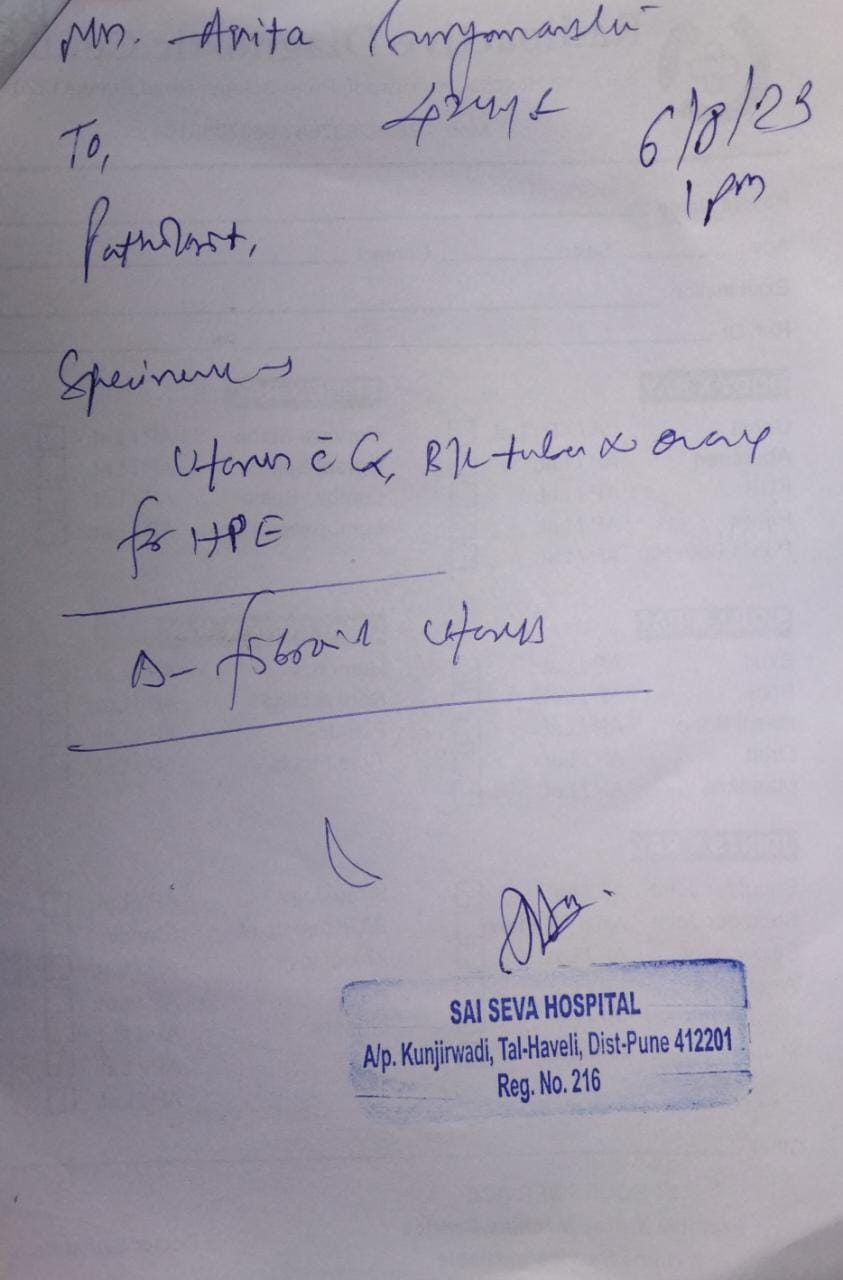 Mrs. Anita Suryawanshi
42 yrs
6/8/23
1 pm
To,
Pathologist,
Specimen →
Uterus c̄ Cx, B/L tubes & ovary
for HPE
Δ- fibroid uterus
SAI SEVA HOSPITAL
A/p. Kunjirwadi, Tal-Haveli, Dist-Pune 412201
Reg. No. 216